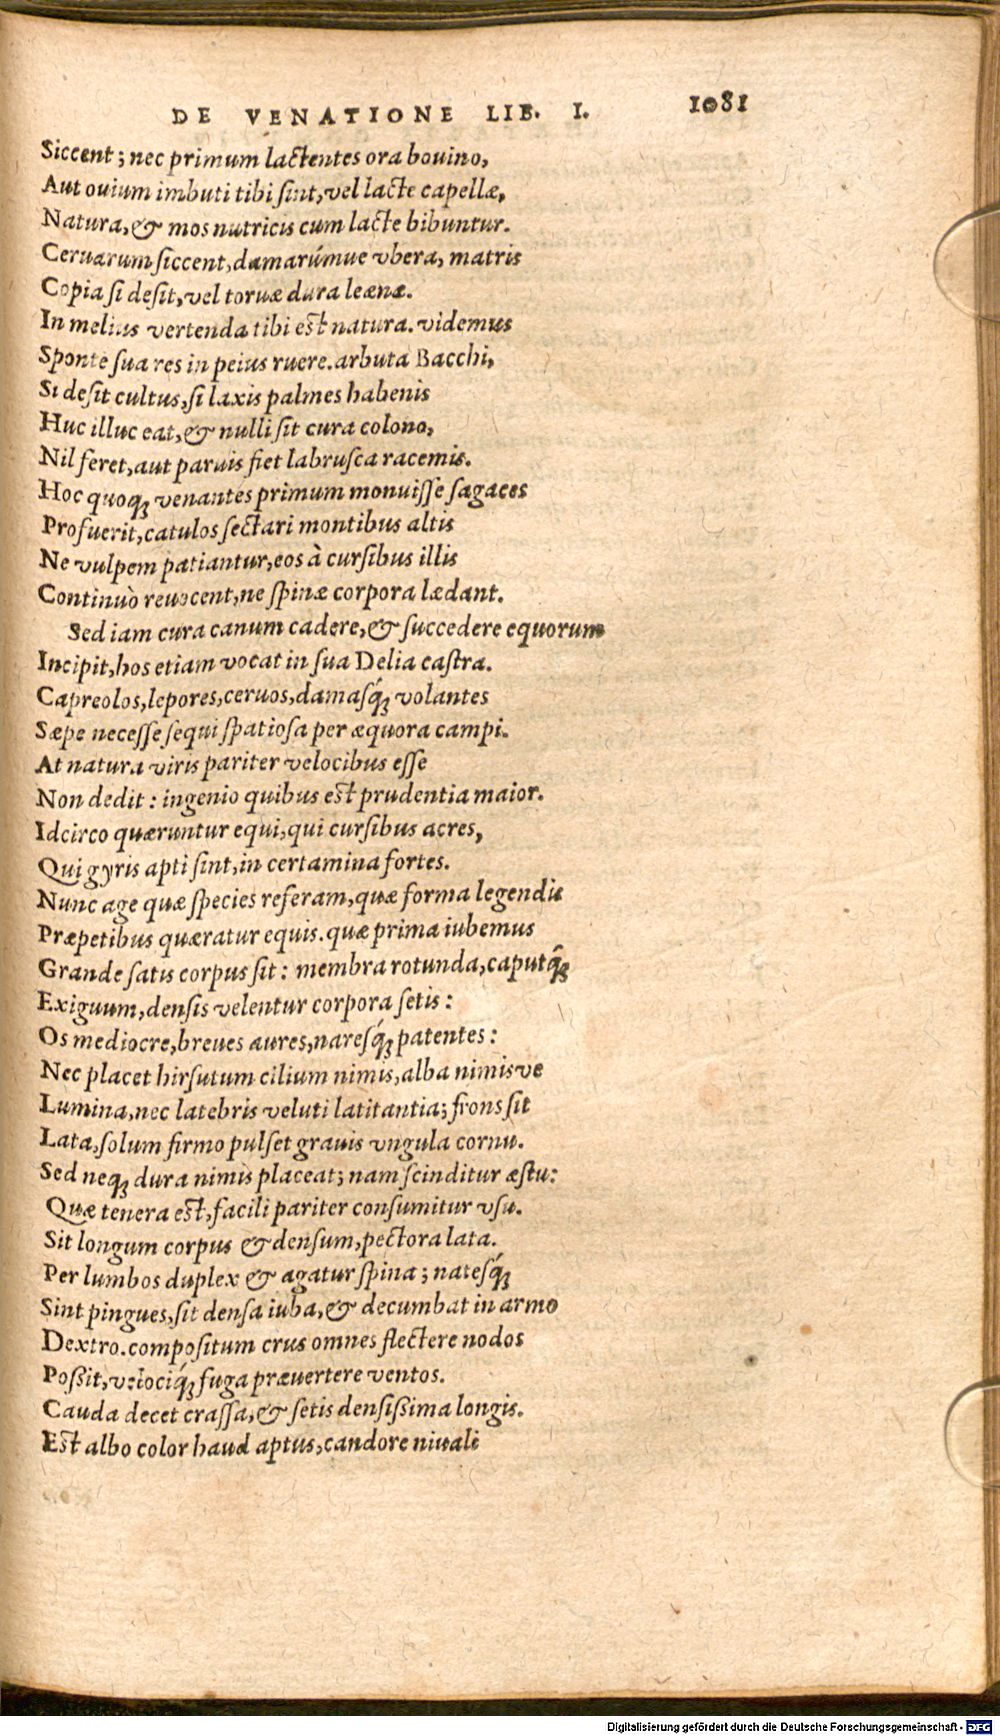 DE VENATIONE LIB. I. 1081
Siccent; nec primum lactentes ora bouino,
Aut ouium imbuti tibi sint, vel lacte capellæ,
Natura, & mos nutricis cum lacte bibuntur.
Ceruarum siccent, damarúmue vbera, matris
Copia si desit, vel toruæ dura leænæ.
In melius vertenda tibi est natura. videmus
Sponte sua res in peius ruere. arbuta Bacchi,
Si desit cultus, si laxis palmes habenis
Huc illuc eat, & nulli sit cura colono,
Nil feret, aut paruis fiet labrusca racemis.
Hoc quoq; venantes primum monuisse sagaces
Profuerit, catulos sectari montibus altis
Ne vulpem patiantur, eos à cursibus illis
Continuò reuocent, ne spinæ corpora lædant.
Sed iam cura canum cadere, & succedere equorum
Incipit, hos etiam vocat in sua Delia castra.
Capreolos, lepores, ceruos, damasq́; volantes
Sæpe necesse sequi spatiosa per æquora campi.
At natura viris pariter velocibus esse
Non dedit: ingenio quibus est prudentia maior.
Idcirco quæruntur equi, qui cursibus acres,
Qui gyris apti sint, in certamina fortes.
Nunc age quæ species referam, quæ forma legendis
Præpetibus quæratur equis. quæ prima iubemus
Grande satis corpus sit: membra rotunda, caputq́;
Exiguum, densis velentur corpora setis:
Os mediocre, breues aures, naresq́; patentes:
Nec placet hirsutum cilium nimis, alba nimisve
Lumina, nec latebris veluti latitantia; frons sit
Lata, solum firmo pulset grauis vngula cornu.
Sed neq; dura nimis placeat; nam scinditur æstu:
Quæ tenera est, facili pariter consumitur vsu.
Sit longum corpus & densum, pectora lata.
Per lumbos duplex & agatur spina; natesq́;
Sint pingues, sit densa iuba, & decumbat in armo
Dextro. compositum crus omnes flectere nodos
Poßit, velociq́; fuga præuertere ventos.
Cauda decet crassa, & setis densißima longis.
Est albo color haud aptus, candore niuali
Digitalisierung gefördert durch die Deutsche Forschungsgemeinschaft - DFG